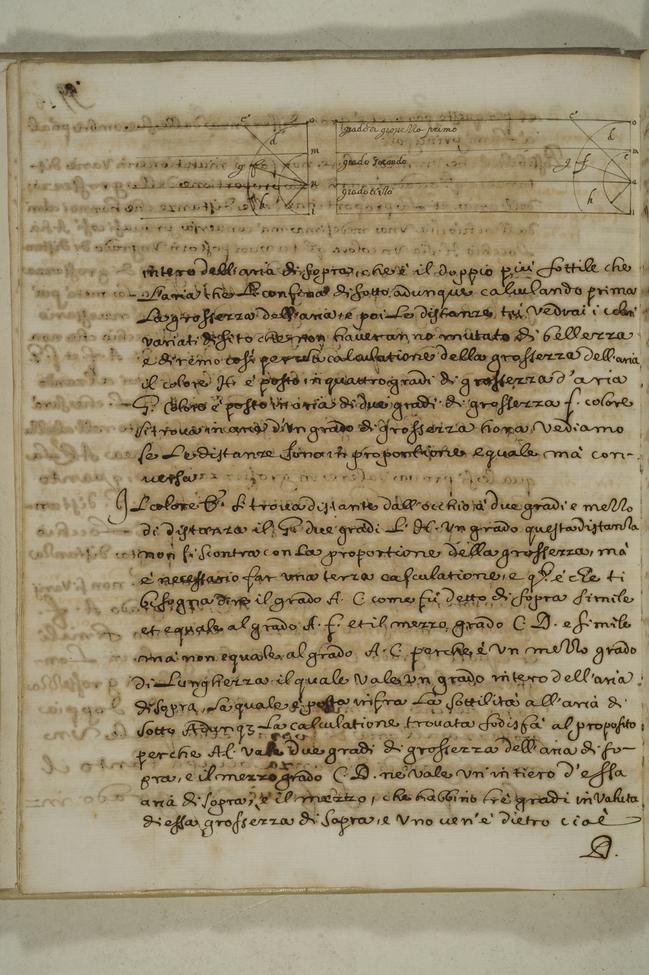 e o e o
d h
grado di grossezza primo
m c m
g f grado secondo g f
n n
h grado terzo h
i i
intero dell'aria di sopra, che è il doppio più sottile che
l'aria che le confina di sotto adunque calculando prima
la grossezza dell'aria, e poi le distanze, tu vedrai i colori
variati di sito che non haveranno mutato di bellezza
e diremo così per la calculatione della grossezza dell'aria
il colore H. è posto in quattro gradi di grossezza d'aria
G. colore è posto in aria di due gradi di grossezza f. colore
si trova in aria d'un grado di grossezza hora vediamo
se le distanze sono in proportione equale, mà con-
versa
Il colore E. si trova distante dall'occhio à due gradi e mezzo
di distanza il G. due gradi l'H. un grado questa distanza
non si scontra con la proportione della grossezza, mà
è necessario far una terza calculatione, e q.a è che ti
bisogna dire il grado A. C come fù detto di sopra simile
et equale al grado A. f. et il mezzo grado C D. e simile
mà non equale al grado A. C. perche è un mezzo grado
di lunghezza il quale vale un grado intero dell'aria
di sopra, la quale è posta infra la sottilità all'aria di
sotto Adunq3 la calculatione trovata sodisfà al proposito
perche A C. vale due gradi di grossezza dell'aria di so-
pra, e il mezzo grado C D. ne vale un intiero d'essa
aria di sopra, e il mezzo, che habbino tre gradi in valuta
di essa grossezza di sopra, e uno ven'è dietro cioè
D.